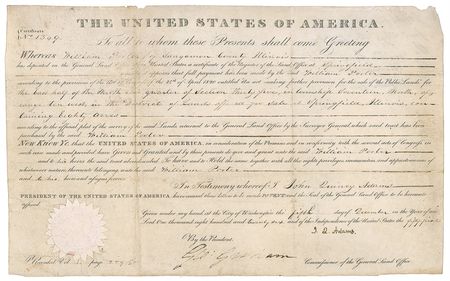 THE UNITED STATES OF AMERICA.
Certificate
No. 1549
To all to whom these Presents shall come Greeting
Whereas William Porter of Sangamon County Illinois
deposited in the General Land Office of the United States a certificate of the Register of the Land Office at Springfield
appears that full payment has been made by the said William Porter
according to the provisions of the Act of of the 24th of April 1820 entitled An act making further provision for the sale of the Public Lands for
the East half of the North quarter of Section Thirty five, in Township Seventeen, North, of
range ten West in the District of Lands offered for sale at Springfield, Illinois, con-
taining Eighty Acres
according to the official plat of the survey of the said Lands returned to the General Land Office by the Surveyor General which said tract has been
purchased by the said William Porter
Now Know Ye that the UNITED STATES OF AMERICA, in consideration of the Premises and in conformity with the several acts of Congress in
such case made and provided have Given and Granted and by these presents do give and grant unto the said William Porter
and to his heirs the said tract above described To have and to Hold the same together with all the rights privileges immunities and appurtenances of
whatsoever nature thereunto belonging unto the said William Porter
and to his heirs and assigns forever
In Testimony whereof I John Quincy Adams
PRESIDENT OF THE UNITED STATES OF AMERICA have caused these letters to be made PATENT and the Seal of the General Land Office to be hereunto
affixed
Given under my hand at the City of Washington the fifth day of December in the Year of our
Lord One thousand eight hundred and twenty and of the Independence of the United States the fifty first
J. Q. Adams
By the President
Geo: Graham Commissioner of the General Land Office
Recorded Vol. page